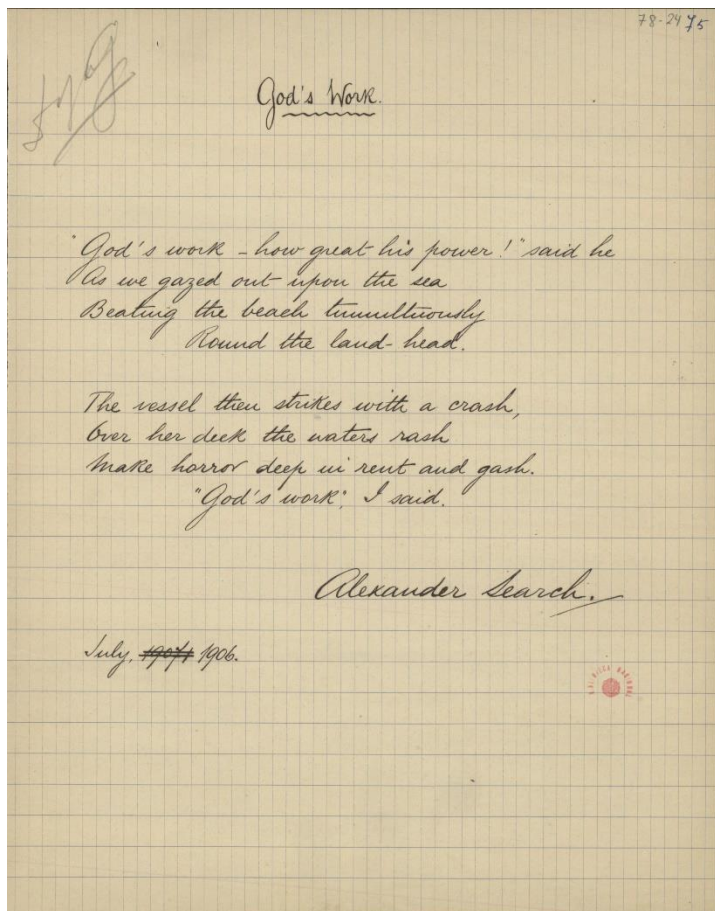 78-24 75
God's Work.
"God's work – how great his power!" said he
As we gazed out upon the sea
Beating the beach tumultuously
Round the land-head.
The vessel then strikes with a crash,
Over her deck the waters rash
Make horror deep in rent and gash.
"God's work", I said.
Alexander Search.
July, 1906.
BIBLIOTECA NACIONAL